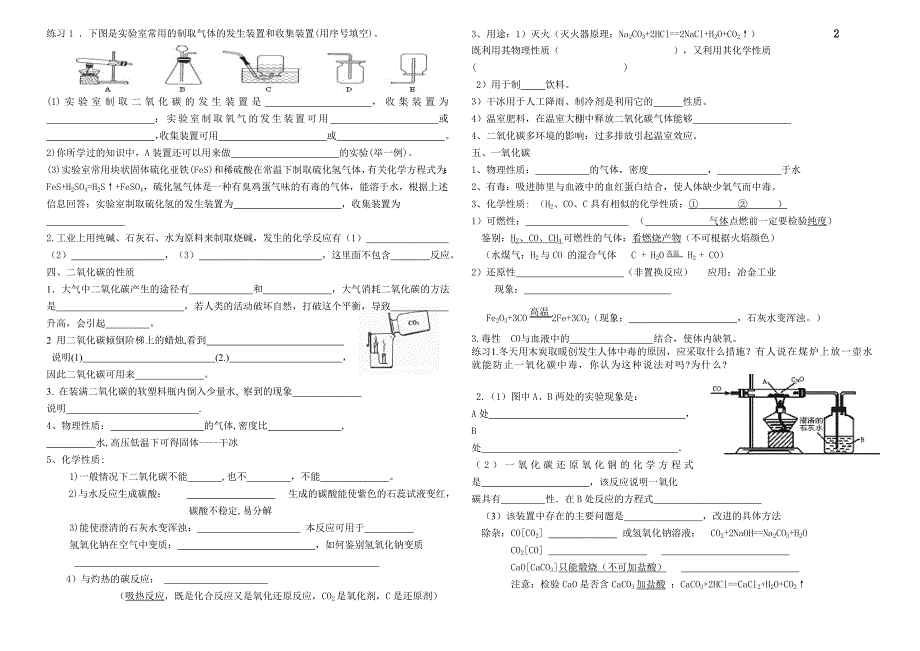 练习1 .下图是实验室常用的制取气体的发生装置和收集装置(用序号填空)。
A B C D E
(1)实验室制取二氧化碳的发生装置是____________________,收集装置为
____________________;实验室制取氧气的发生装置可用____________________或
____________________,收集装置可用____________________或____________________。
2)你所学过的知识中，A装置还可以用来做____________________的实验(举一例)。
(3)实验室常用块状固体硫化亚铁(FeS)和稀硫酸在常温下制取硫化氢气体,有关化学方程式为
FeS+H2SO4=H2S↑+FeSO4,硫化氢气体是一种有臭鸡蛋气味的有毒的气体，能溶于水，根据上述
信息回答；实验室制取硫化氢的发生装置为____________________,收集装置为
____________________
2.工业上用纯碱、石灰石、水为原料来制取烧碱，发生的化学反应有（1）____________________
（2）____________________,（3）____________________,这里面不包含________反应。
四、二氧化碳的性质
1、大气中二氧化碳产生的途径有____________和____________,大气消耗二氧化碳的方法
是____________________,若人类的活动破坏自然，打破这个平衡,导致____________
升高，会引起________。
CO2
2 用二氧化碳倾倒阶梯上的蜡烛,看到____________________
说明(1)____________________(2.)____________________,
因此二氧化碳可用来____________。
3. 在装满二氧化碳的软塑料瓶内倒入少量水,察到的现象____________
说明____________________.
4、物理性质：____________________的气体,密度比____________,
________水,高压低温下可得固体----干冰
5、化学性质:
1)一般情况下二氧化碳不能______,也不________，不能____________。
2)与水反应生成碳酸： ____________________ 生成的碳酸能使紫色的石蕊试液变红,
碳酸不稳定,易分解
3)能使澄清的石灰水变浑浊：____________________ 本反应可用于________
氢氧化钠在空气中变质：____________________,如何鉴别氢氧化钠变质
____________________
4）与灼热的碳反应；____________________
（吸热反应，既是化合反应又是氧化还原反应，CO2是氧化剂，C是还原剂）
3、用途：1）灭火（灭火器原理：Na2CO3+2HCl==2NaCl+H2O+CO2↑）
2
既利用其物理性质（ ），又利用其化学性质
( )
2）用于制____饮料。
3）干冰用于人工降雨、制冷剂是利用它的______性质。
4）温室肥料，在温室大棚中释放二氧化碳气体能够____________________
4、二氧化碳多环境的影响：过多排放引起温室效应。
五、一氧化碳
1、物理性质：__________的气体，密度__________,____________于
2、有毒：吸进肺里与血液中的血红蛋白结合，使人体缺少氧气而中毒。
3、化学性质:（H2、CO、C具有相似的化学性质：① ② ）
1）可燃性：____________________（____________气体点燃前一定要检验纯度）
鉴别：H2、CO、CH4可燃性的气体：看燃烧产物（不可根据火焰颜色）
（水煤气：H2与CO 的混合气体 C + H2O 高温 H2 + CO）
2）还原性____________________（非置换反应） 应用：冶金工业
现象：____________________
Fe2O3+3CO 高温 2Fe+3CO2（现象：____________________,石灰水变浑浊。）
3.毒性 CO与血液中的____________结合，使体内缺氧。
练习1.冬天用木炭取暖创发生人体中毒的原因，应采取什么措施? 有人说在煤炉上放一壶水
就能防止一氧化碳中毒，你认为这种说法对吗?为什么?
CO A CuO 澄清的石灰水 B
2.（1）图中A、B两处的实验现象是：
A处____________________,
B
处____________________.
（2）一氧化碳还原氧化铜的化学方程式
是____________________,该反应说明一氧化
碳具有________性．在B处反应的方程式____________________
（3）该装置中存在的主要问题是____________,改进的具体方法
除杂：CO[CO2] ____________ 或氢氧化钠溶液； CO2+2NaOH==Na2CO3+H2O
CO2[CO] ____________ ____________
CaO[CaCO3]只能煅烧(不可加盐酸) ____________
注意：检验CaO是否含CaCO3加盐酸 ；CaCO3+2HCl==CaCl2+H2O+CO2↑